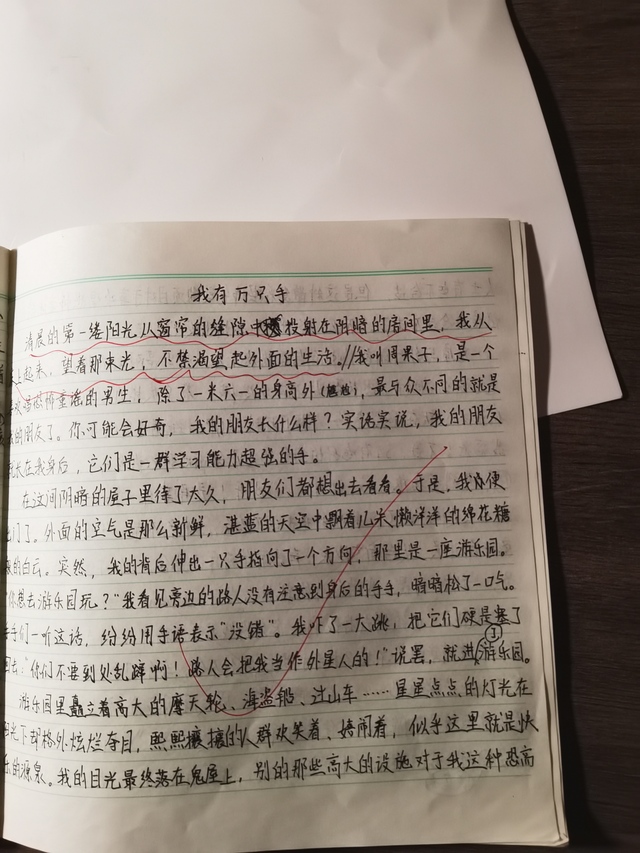 我有万只手
清晨的第一缕阳光从窗帘的缝隙中投射在阴暗的房间里，我从
上起来，望着那束光，不禁渴望起外面的生活。//我叫周果子，是一个
恐怖童谣的男生，除了一米六一的身高外（尴尬），最与众不同的就是
的朋友了。你可能会好奇，我的朋友长什么样？实话实说，我的朋友
长在我身后，它们是一群学习能力超强的手。
在这间阴暗的屋子里待了太久，朋友们都想出去看看。于是，我便
出门了。外面的空气是那么新鲜，湛蓝的天空中飘着几朵懒洋洋的绵花糖
的白云。突然，我的背后伸出一只手指向了一个方向，那里是一座游乐园。
你想去游乐园玩？"我看见旁边的路人没有注意到身后的手手，暗暗松了一口气。
手们一听这话，纷纷用手语表示"没错"。我吓了一大跳，把它们硬是塞了
回去："你们不要到处乱蹿啊！路人会把我当作外星人的！"说罢，就进游乐园。
①
游乐园里矗立着高大的摩天轮、海盗船、过山车……星星点点的灯光在
阳光下却格外炫烂夺目，熙熙攘攘的人群欢笑着、嬉闹着，似乎这里就是快
乐的源泉。我的目光最终落在鬼屋上，别的那些高大的设施对于我这种恐高